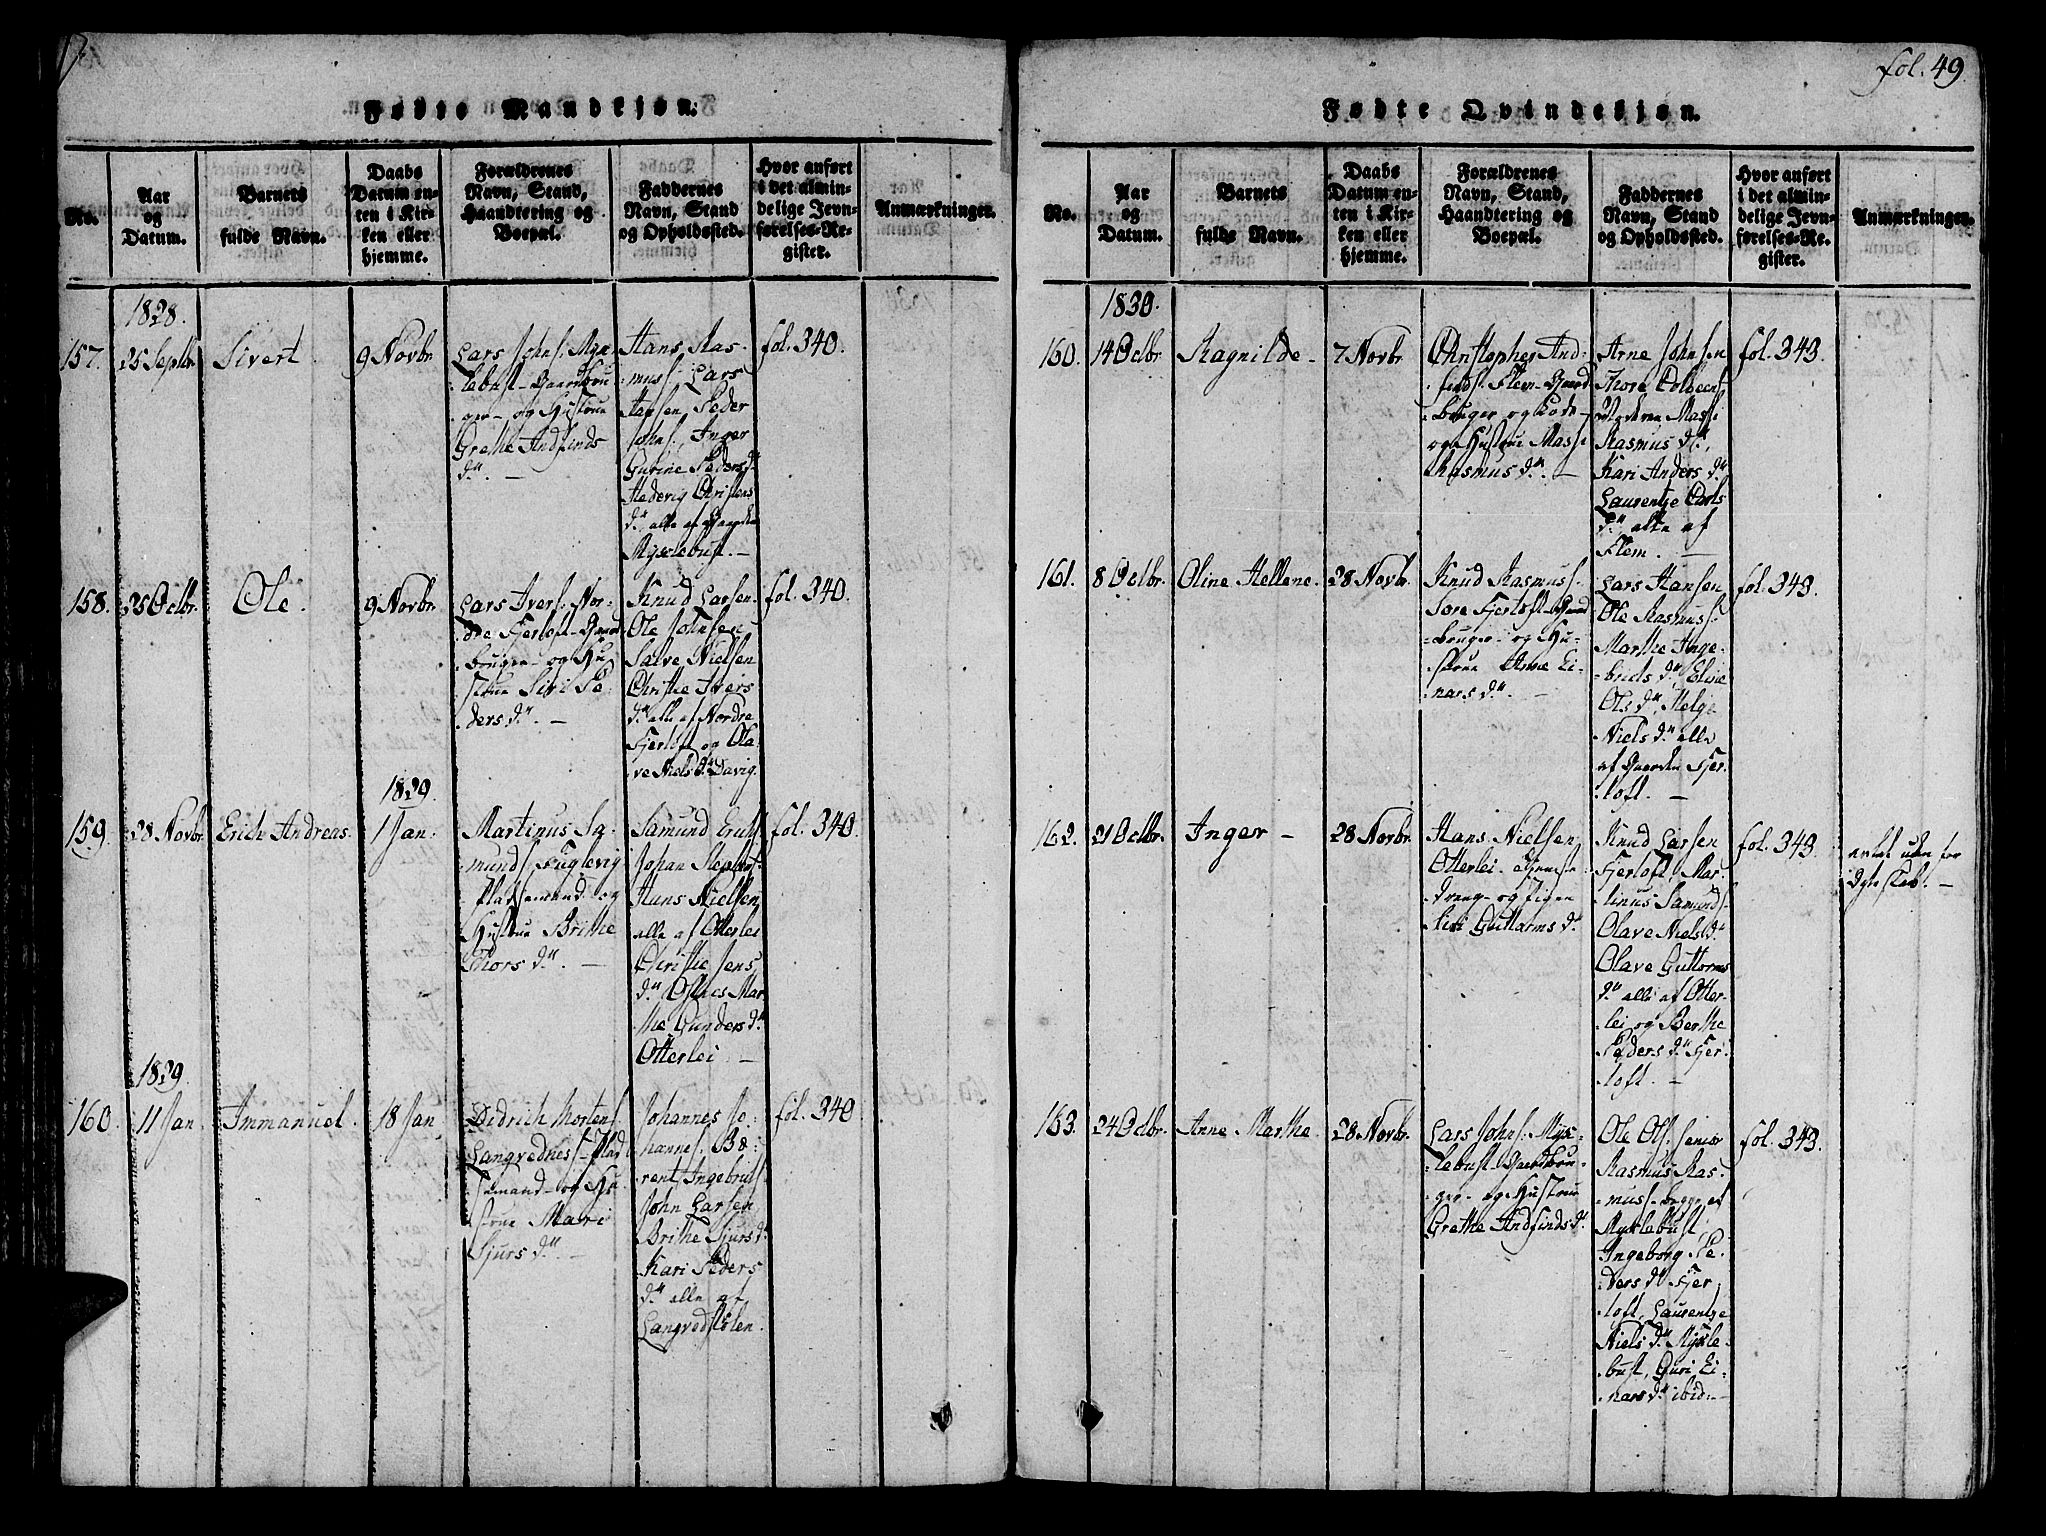 fol. 49
Fødte Mandkjøn.
No.
Aar
og
Datum.
Barnets
fulde Navn.
Daabs
Datum en-
ten i Kir-
ken eller
hjemme.
Forældrenes
Navn, Stand,
Haandtering og
Boepæl.
Faddernes
Navn, Stand
og Opholdssted.
Hvor anført
i det almin-
delige Jevn-
førelses-Re-
gister.
Anmærkninger.
1828.
157.
25 Septbr
Sivert
9 Novbr
Lars Johns. Myk-
lebust Gaardbru-
ger og Hustrue
Grethe Andfinds
dr. —
Hans Ras-
mus. Lars
Hansen, Peder
Johns. Inger
Gurine Peders dr
Hedevig Christens
dr alle af Gaarden
Myklebust. —
fol. 340.
158.
25 Octbr.
Ole
9 Novbr.
Lars Ivers. Nor-
dre Fjertoft Gaard-
bruger og Hu-
strue Siri Pe-
ders dr. —
Knud Larsen
Ole Johnsen
Salve Nielsen
Christhe Ivers
dr alle af Nordre
Fjertoft og Ola-
ve Niels dr Davig.
fol. 340.
159.
28 Novbr
Erich Andreas.
1829.
1 Jan.
Martinus Sa-
munds. Fuglevig
Pladsemand og
Hustrue Brithe
Thors dr. —
Samund Erichs.
Johan
Hans Nielsen
alle af Otterlei
Christhe Jens
dr Mar-
the Gunders dr
Otterlei —
fol. 340.
1829.
160.
11 Jan.
Immanuel.
18 Jan.
Didrich Mortens.
Langvednes Plad-
semand og Hu-
strue Mari
Sjurs dr. —
Johannes Jo-
hannes. Be-
rent Ingebrigts.
John Larsen
Brithe Sjurs dr
Kari Peders
dr alle af
Langvedstolen.
fol. 340
Fødte Qvindekjøn.
No.
Aar
og
Datum.
Barnets
fulde Navn.
Daabs
Datum en-
ten i Kir-
ken eller
hjemme.
Forældrenes
Navn, Stand,
Haandtering og
Boepæl.
Faddernes
Navn, Stand
og Opholdssted.
Hvor anført
i det almin-
delige Jevn-
førelses-Re-
gister.
Anmærkninger.
1830.
160.
14 Octbr.
Ragnilde —
7 Novbr.
Christopher And-
finds. Flem Gaard-
bruger og
og Hustrue Massi
Rasmus dr. —
Arne Johnsen
Thore
Massi
Rasmus dr,
Kari Anders dr
Laurentze
dr alle af
Flem. —
fol. 343.
161.
8 Octbr.
Oline Hellene.
28 Novbr.
Knud Rasmus.
Søre Fjertoft Gaard-
bruger og Hu-
strue Anne Ei-
nars dr. —
Lars Hansen
Ole Rasmus.
Marthe Inge-
brigts dr, Eline
Ols dr, Helge
Niels dr alle
af Gaarden Fjer-
toft. —
fol. 343.
162.
21 Octbr.
Inger —
28 Novbr.
Hans Nielsen
Otterlei tjeneste-
dreng og Pigen
Siri Guttorms dr.
Knud Larsen
Fjertoft, Mar-
tinus Samunds.
Olave Niels dr
Olave Guttorms
dr alle af Otter-
lei og Berthe
Peders dr Fjer-
toft. —
fol. 343.
avlet uden for
Ægteskab. —
163.
24 Octbr.
Anne Marthe.
28 Novbr.
Lars Johns. Myk-
lebust Gaardbru-
ger og Hustrue
Grethe Andfinds dr.
Ole Ols. senior
Rasmus Ras-
mus. begge af
Myklebust,
Ingeborg Pe-
ders dr Fjer-
toft, Laurentze
Niels dr Mykle-
bust, Guri Ei-
nars dr ibid: —
fol. 343.